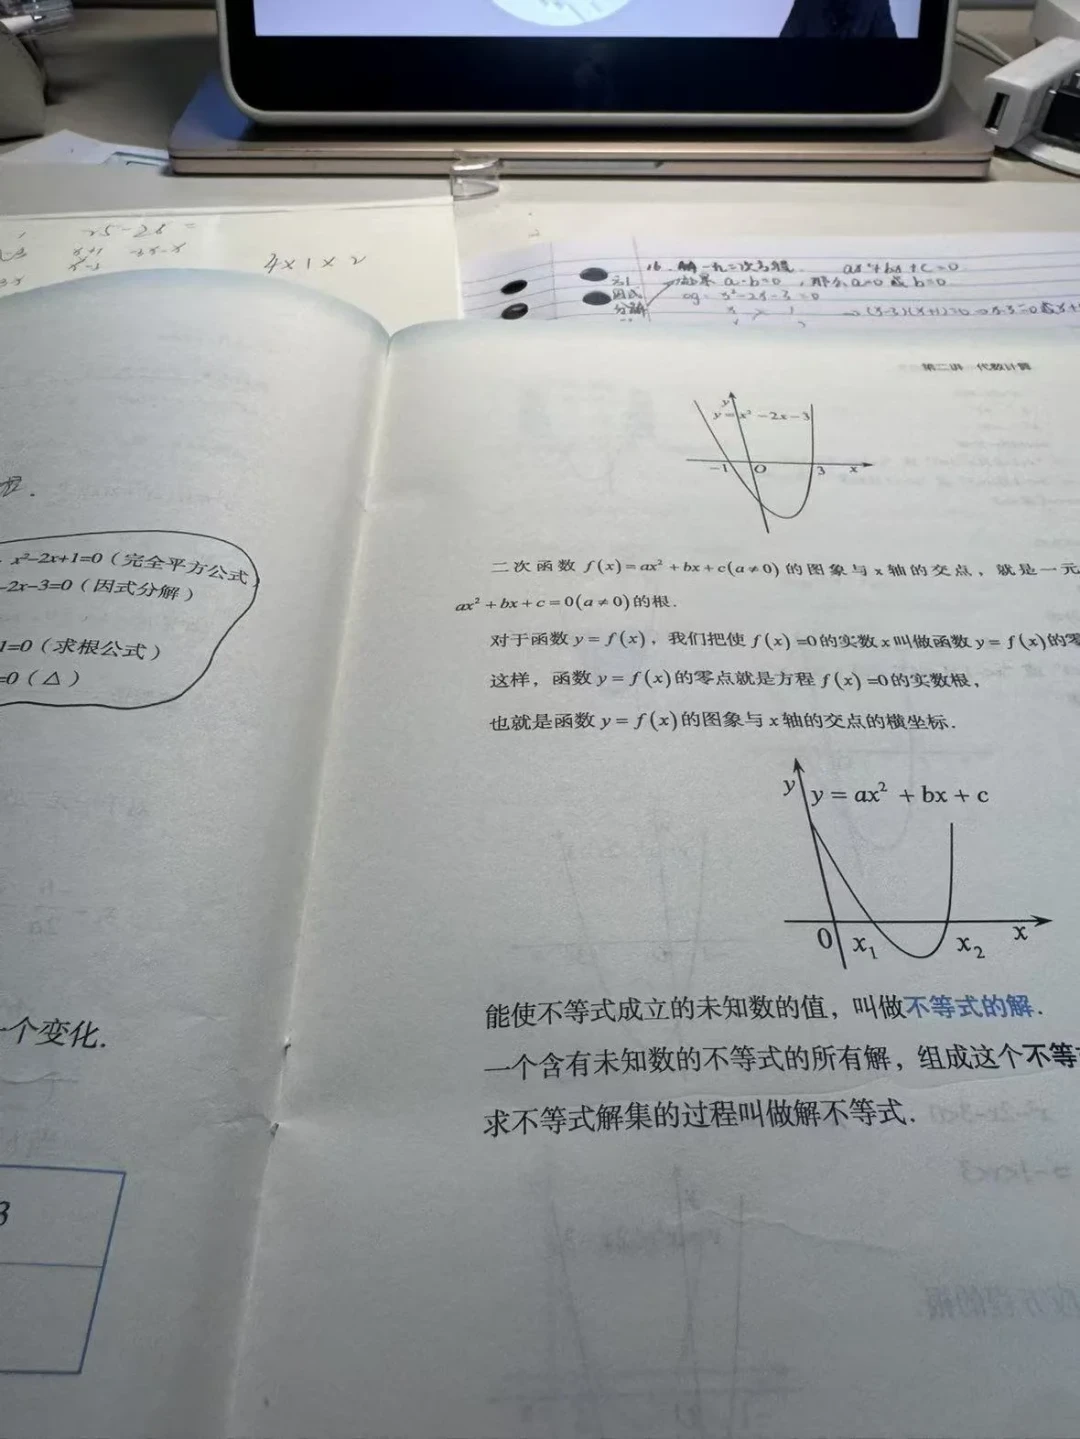 25-26=
4×1×2
解一元二次方程. ax²+bx+c=0
如果 a·b=0, 那么a=0或b=0
因式
分解
eg: x²-2x-3=0
第二讲 代数计算
y
y=x²-2x-3
-1 O 3 x
x²-2x+1=0(完全平方公式)
-2x-3=0(因式分解)
1=0(求根公式)
=0(△)
一个变化.
3
二次函数 f(x)=ax²+bx+c(a≠0)的图象与x轴的交点，就是一元
ax²+bx+c=0(a≠0)的根.
对于函数y=f(x)，我们把使f(x)=0的实数x叫做函数y=f(x)的零
这样，函数y=f(x)的零点就是方程f(x)=0的实数根，
也就是函数y=f(x)的图象与x轴的交点的横坐标.
y
y=ax²+bx+c
0 x₁ x₂ x
能使不等式成立的未知数的值，叫做不等式的解.
一个含有未知数的不等式的所有解，组成这个不等
求不等式解集的过程叫做解不等式.